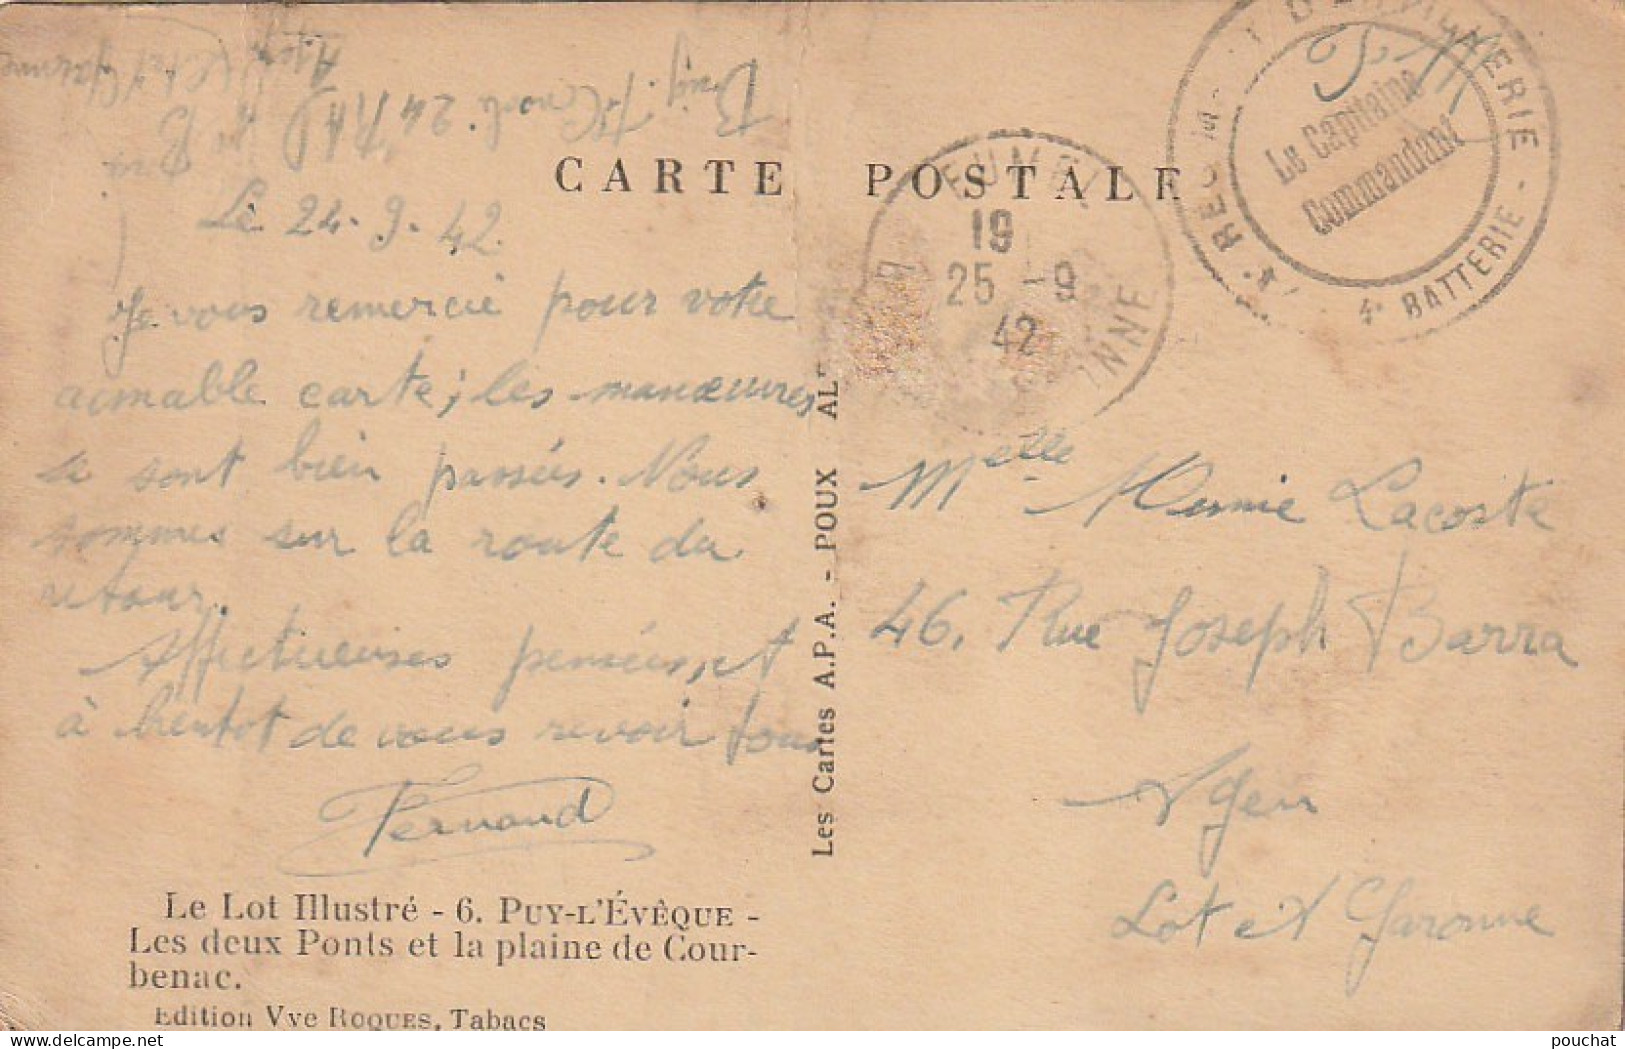 CARTE POSTALE
Le 24-9-42
Je vous remercie pour votre
aimable carte; les manœuvres
se sont bien passées. Nous
sommes sur la route du
retour.
Affectueuses pensées, et
à bientot de vous revoir tous
Fernand
Le Lot Illustré - 6. PUY-L'ÉVÊQUE -
Les deux Ponts et la plaine de Cour-
benac.
Edition Vve ROQUES, Tabacs
Les Cartes A.P.A. - POUX
FUMEL
19
25 -9
42
Le Capitaine
Commandant
4e BATTERIE
Melle Lacoste
46, Rue Joseph Barra
Agen
Lot et Garonne
delcampe.net
pouchat